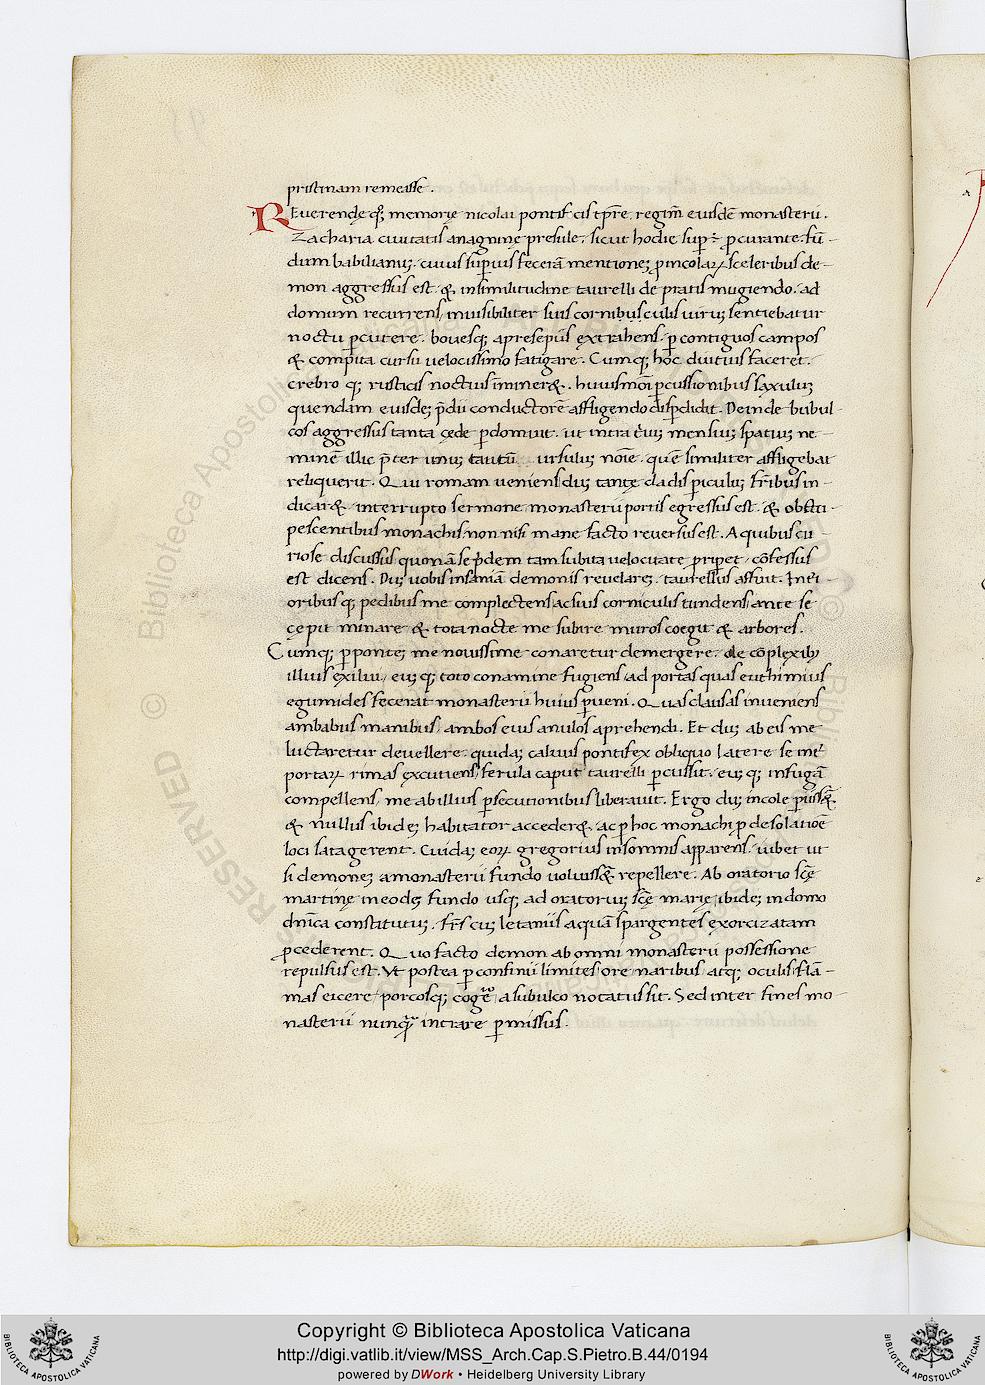 pristinam remeasse.
Reuerendę q; memorię nicolai pontificis tp̄re, regim̄ eiusdē monasterii.
Zacharia ciuitatis anagninę presule, sicut hodie sup̄ ē p̄curante. fū-
dum babilianus, cuius sup̄ius fecerā mentionez p̄ incolaꝝ sceleribus de-
mon aggressus est. & insimilitudine taurelli de pratis mugiendo. ad
domum recurrens, inuisibiliter suis cornibus cuius uirus sentiebatur
noctu p̄cutere. bouesq; apresepiis extrahens. p̄ contiguos campos
& compita cursu uelocissimo fatigare. Cumq; hoc diutius faceret.
crebro q; rusticis noctuis iminer&. huiusmōi p̄cussionibus saxulus
quendam eiusdez p̄dii conductorē affligendo disp̄didit. Deinde bubul-
cos aggressus tanta cęde p̄domuit. ut intra triuz mensiuz spatiuz ne-
minē illic p̄ter unuz tantū ursuluz noīe. quē similiter affligebat
reliquerit. Qui romam ueniens duz tantę cladis p̄iculuz fr̄ibus in-
dicar&. interrupto sermone monasterii portis egressus est. & obsti-
pescentibus monachis non nisi mane facto reuersus est. A quibus cu-
riose discussus quonā se p̄dem tam subita uelocitate p̄ripet, cōfessus
est dicens. Duz uobis insaniā demonis reuelarez, taurellus assuit. Inei-
oribus q; pedibus me complectens ac suis corniculis tundens, ante se
cępit minare & tota nocte me subire muros coegit & arbores.
Cumq; p̄ pontez me nouissime conaretur demergere. de cōplexibꝫ
illius exiliui, eiusq; toto conamine fugiens, ad portas quas euthimius
egumides fecerat monasterii huius p̄ueni. Quas clausas inueniens
ambabus manibus, ambos eius anulos aprehendi. Et duz ab eis me
luctaretur deuellere. quidaz caluus pontifex obliquo latere se int̄
portaꝝ rimas excutiens, ferula caput taurelli p̄cussit. euz q; infugā
compellens, me ab illius p̄secutionibus liberauit. Ergo duz incole p̄iiss&
& nullus ibidez habitator acceder&. ac p̄ hoc monachi p̄ desolatioē
loci satagerent. Cuidaz eoꝝ gregorius insomnis apparens. iubet ut
si demonez a monasterii fundo uoluiss& repellere. Ab oratorio scę̄
martinę in eodez fundo usq; ad oratoriuz scę̄ marię, ibidez in domo
dn̄ica constitutuz. fr̄s cuz letaniis aquā spargentes exorcizatam
p̄cederent. Quo facto demon ab omni monasterii possessione
repulsus est. Vt postea p̄ confinii limites ore naribus atq; oculis flā-
mas eicere porcosq; cogē a subulco notatus sit. Sed inter fines mo-
nasterii nunq̄ intrare p̄missus.
© Biblioteca Apostolica Vaticana
ALL RIGHTS RESERVED
Copyright © Biblioteca Apostolica Vaticana
http://digi.vatlib.it/view/MSS_Arch.Cap.S.Pietro.B.44/0194
powered by DWork • Heidelberg University Library
BIBLIOTECA APOSTOLICA VATICANA
BIBLIOTECA APOSTOLICA VATICANA